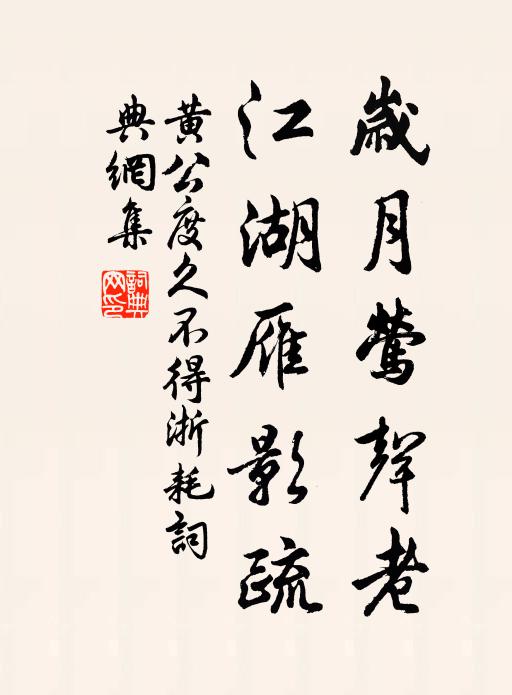 歲月鶯聲老
江湖雁影疏
黃公度久不得浙耗詞
典網集
詞典網印